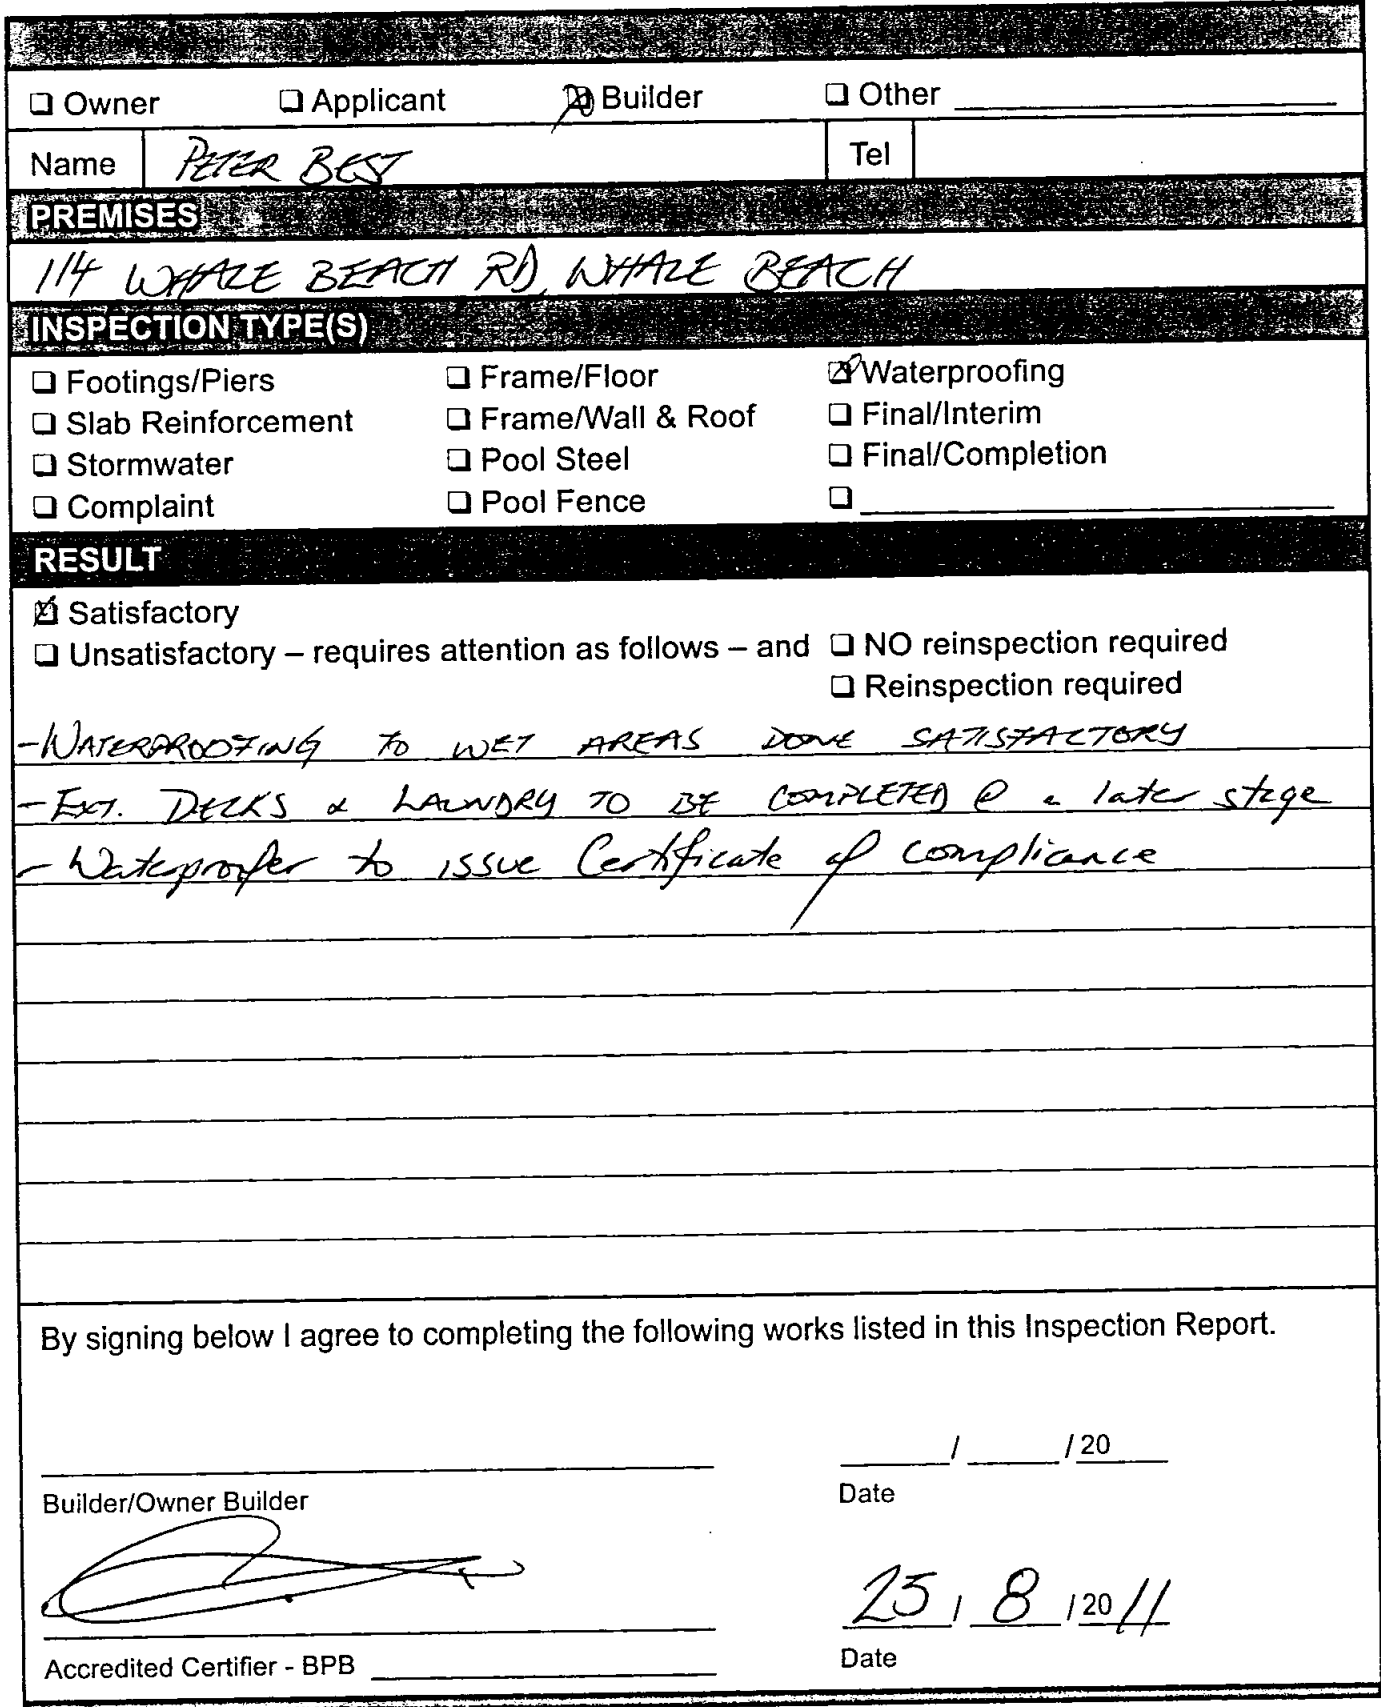 ☐ Owner ☐ Applicant ☒ Builder ☐ Other
Name PETER BEST Tel
PREMISES
114 WHALE BEACH RD, WHALE BEACH
INSPECTION TYPE(S)
☐ Footings/Piers ☐ Frame/Floor ☒ Waterproofing
☐ Slab Reinforcement ☐ Frame/Wall & Roof ☐ Final/Interim
☐ Stormwater ☐ Pool Steel ☐ Final/Completion
☐ Complaint ☐ Pool Fence ☐
RESULT
☒ Satisfactory
☐ Unsatisfactory – requires attention as follows – and ☐ NO reinspection required
☐ Reinspection required
- WATERPROOFING TO WET AREAS DONE SATISFACTORY
- EXT. DECKS & LAUNDRY TO BE COMPLETED @ a later stage
- Waterproofer to issue Certificate of compliance
By signing below I agree to completing the following works listed in this Inspection Report.
/ / 20
Builder/Owner Builder Date
25 / 8 / 20 11
Accredited Certifier - BPB Date